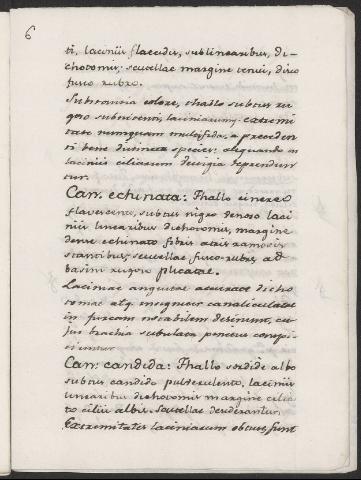 6
ti, laciniis flaccidis, sublinearibus, di-
chotomis; scutellae margine tenui, disco
fusco rubro.
Substantia colore, thallo subtus ni-
gro subnitenti, laciniarumq. extremi
tate numquam multifida, a preceden
ti bene distincta species: aliquando in
laciniis ciliarum vestigia deprendun
tur.
Can. echinata: Thallo cinereo
flavescente, subtus nigro denso laci
niis linearibus dichotomis, margine
dense echinato fibris atris ramosis
stantibus, scutellae fusco-rubrae ad
basim rugoso plicatae.
Laciniae angustae accurate dicho
tomae atq. insigniter canaliculatae
in furcam notabilem desinunt, cu
jus brachia subulata penitus conspi
ciuntur
Can. candida: Thallo sordide albo
subtus candido pulverulento, laciniis
linearibus dichotomis margine cilia
to ciliis albis. Scutellae desiderantur.
Extremitates laciniarum obtusae sunt